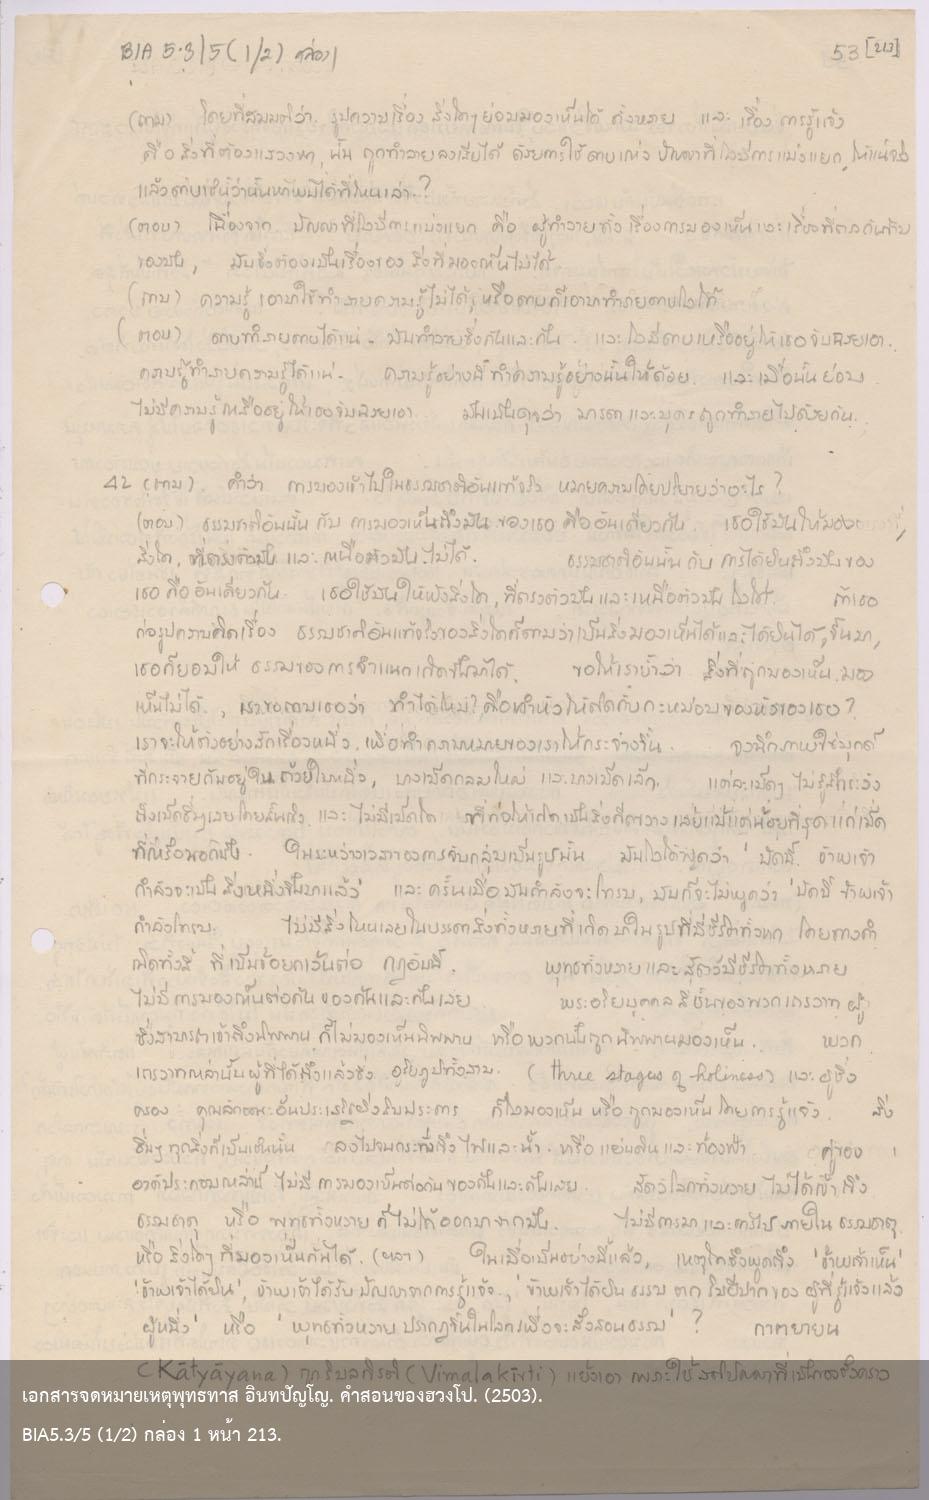 BIA 5.3/5 (1/2) กล่อง 1
53 [บน]
(ถาม) โดยที่สมมติว่า รูปความเรื่อง สิ่งใดๆ ย่อมมองเห็นได้ ทั้งหลาย และ เรื่อง การรู้แจ้ง
คือ สิ่งที่ต้องแสวงหา, นั้น ถูกทำลายลงเสียได้ ด้วยการใช้ดาบแห่ง ปัญญาที่ไม่มีการแบ่งแยก
แล้ว
(ตอบ) เนื่องจาก ปัญญาที่ไม่มีการแบ่งแยก คือ ผู้ทำลายทั้ง เรื่องการมองเห็น และ
ของมัน, มันจึงต้องเป็นเรื่องของ สิ่งที่มองเห็นไม่ได้.
(ถาม) ความรู้ เอามาใช้ทำลายความรู้ไม่ได้, หรือดาบก็เอามาทำลายดาบไม่ได้
(ตอบ) ดาบทำลายดาบได้แน่. มันทำลายซึ่งกันและกัน. และไม่มีดาบเหลืออยู่ให้เธอจับฉวยเอา.
ความรู้ทำลายความรู้ได้แน่. ความรู้อย่างนี้ ทำความรู้อย่างนั้นให้ และเมื่อนั้น ย่อม
ไม่มีความรู้เหลืออยู่ให้เธอจับฉวยเอา. มันเป็นดุจว่า มารดา และบุตร ถูกทำลายไปด้วยกัน.
42 (ถาม). คำว่า การมองเข้าไปในธรรมชาติอันแท้จริง หมายความโดยปริยายว่าอะไร?
(ตอบ) ธรรมชาติอันนั้น กับ การมองเห็นถึงมัน ของเธอ คืออันเดียวกัน. เธอใช้มันให้มอง
สิ่งใด, ที่ตรงตัวมัน และ เหนือตัวมัน ไม่ได้. ธรรมชาติอันนั้น กับ การได้ยินถึงมันของ
เธอ คือ อันเดียวกัน. เธอใช้มัน ให้ฟังสิ่งใด, ที่ตรงตัวมัน และเหนือตัวมัน ไม่ได้. ถ้าเธอ
ก่อรูปความคิดเรื่อง ธรรมชาติอันแท้จริงของสิ่งใดก็ตามว่าเป็นสิ่งมองเห็นได้และได้ยินได้, ขึ้นมา,
เธอก็ยอมให้ ธรรมของการจำแนกเกิดขึ้นมาได้. ขอให้เราย้ำว่า สิ่งที่ถูกมองเห็น มอง
เห็นไม่ได้., เราขอถามเธอว่า ทำได้ไหม? คือทำหัวให้ติดกับกะหม่อมของหัวของเธอ?
เราจะให้ตัวอย่างสักเรื่องหนึ่ง, เพื่อทำความหมายของเราให้กระจ่างขึ้น. จงนึกภาพไข่มุกด์
ที่กระจายกันอยู่ใน ถ้วยใบหนึ่ง, บางเม็ดกลมใหญ่ และบางเม็ดเล็ก. แต่ละเม็ดๆ ไม่รู้สึก
ถึงเม็ดอื่นๆเลยโดยสิ้นเชิง และ ไม่มีเม็ดใด ที่ก่อให้เกิดเป็นสิ่งกีดขวาง แม้แต่น้อยที่สุดแก่เม็ด
ในระหว่างเวลาของการจับกลุ่มเป็นรูปนั้น มันไม่ได้พูดว่า 'บัดนี้ ข้าพเจ้า
กำลังจะเป็น สิ่งหนึ่งขึ้นมาแล้ว' และ ครั้นเมื่อมันกำลังจะโทรม, มันก็จะไม่พูดว่า 'บัดนี้ ข้าพเจ้า
กำลังโทรม. ไม่มีสิ่งไหนเลยในบรรดาสิ่งทั้งหลายที่เกิดมาใน รูปที่มีชีวิตทั้งหก โดยทางกำ
เนิดทั้งสี่ ที่เป็นข้อยกเว้นต่อ กฎอันนี้. พุทธทั้งหลายและสัตว์มีชีวิตทั้งหลาย
ไม่มี การมองเห็นต่อกัน ของกันและกันเลย พระอริยบุคคล สี่ชั้นของพวกเถรวาท ผู้
ซึ่งสามารถเข้าถึงนิพพาน ก็ไม่มองเห็นนิพพาน หรือพวกนั้นถูกนิพพานมองเห็น. พวก
เถรวาทเหล่านั้น ผู้ที่ได้ถึงแล้วซึ่ง อริยภูมิทั้งสาม. (three stages of holiness) และ ผู้ซึ่ง
ครอง คุณลักษณะอันประเสริฐยิ่งสิบประการ ก็ไม่มองเห็น หรือ ถูกมองเห็น โดยการรู้แจ้ง. สิ่ง
อื่นๆ ทุกสิ่งก็เป็นเช่นนั้น ลงไปจนกระทั่งถึง ไฟและน้ำ. หรือ แผ่นดินและท้องฟ้า. คู่ของ
องค์ประกอบเหล่านี้ ไม่มี การมองเห็นต่อกัน ของกันและกันเลย. สัตว์โลกทั้งหลาย ไม่ได้เข้าถึง
ธรรมธาตุ หรือ พุทธทั้งหลาย ก็ไม่ได้ออกมาจากมัน. ไม่มีการมา และการไป ภายใน ธรรมธาตุ
หรือ สิ่งใดๆ ที่มองเห็นกันได้. (ฯลฯ) ในเมื่อเป็นอย่างนี้แล้ว, เหตุใดจึงพูดถึง 'ข้าพเจ้าเห็น'
'ข้าพเจ้าได้ยิน', ข้าพเจ้าได้รับ ปัญญาจากการรู้แจ้ง., 'ข้าพเจ้าได้ยิน ธรรม จาก ริมฝีปากของ ผู้ที่รู้แจ้งแล้ว
ผู้หนึ่ง' หรือ 'พุทธทั้งหลาย ปรากฏขึ้นในโลกเพื่อจะสั่งสอนธรรม' ? กาตยายน
(Kātyāyana) ถูกวิมลกิรติ (Vimalakīrti) แย้งเอา เพราะใช้
เอกสารจดหมายเหตุพุทธทาส อินทปัญโญ. คำสอนของฮวงโป. (2503).
BIA5.3/5 (1/2) กล่อง 1 หน้า 213.